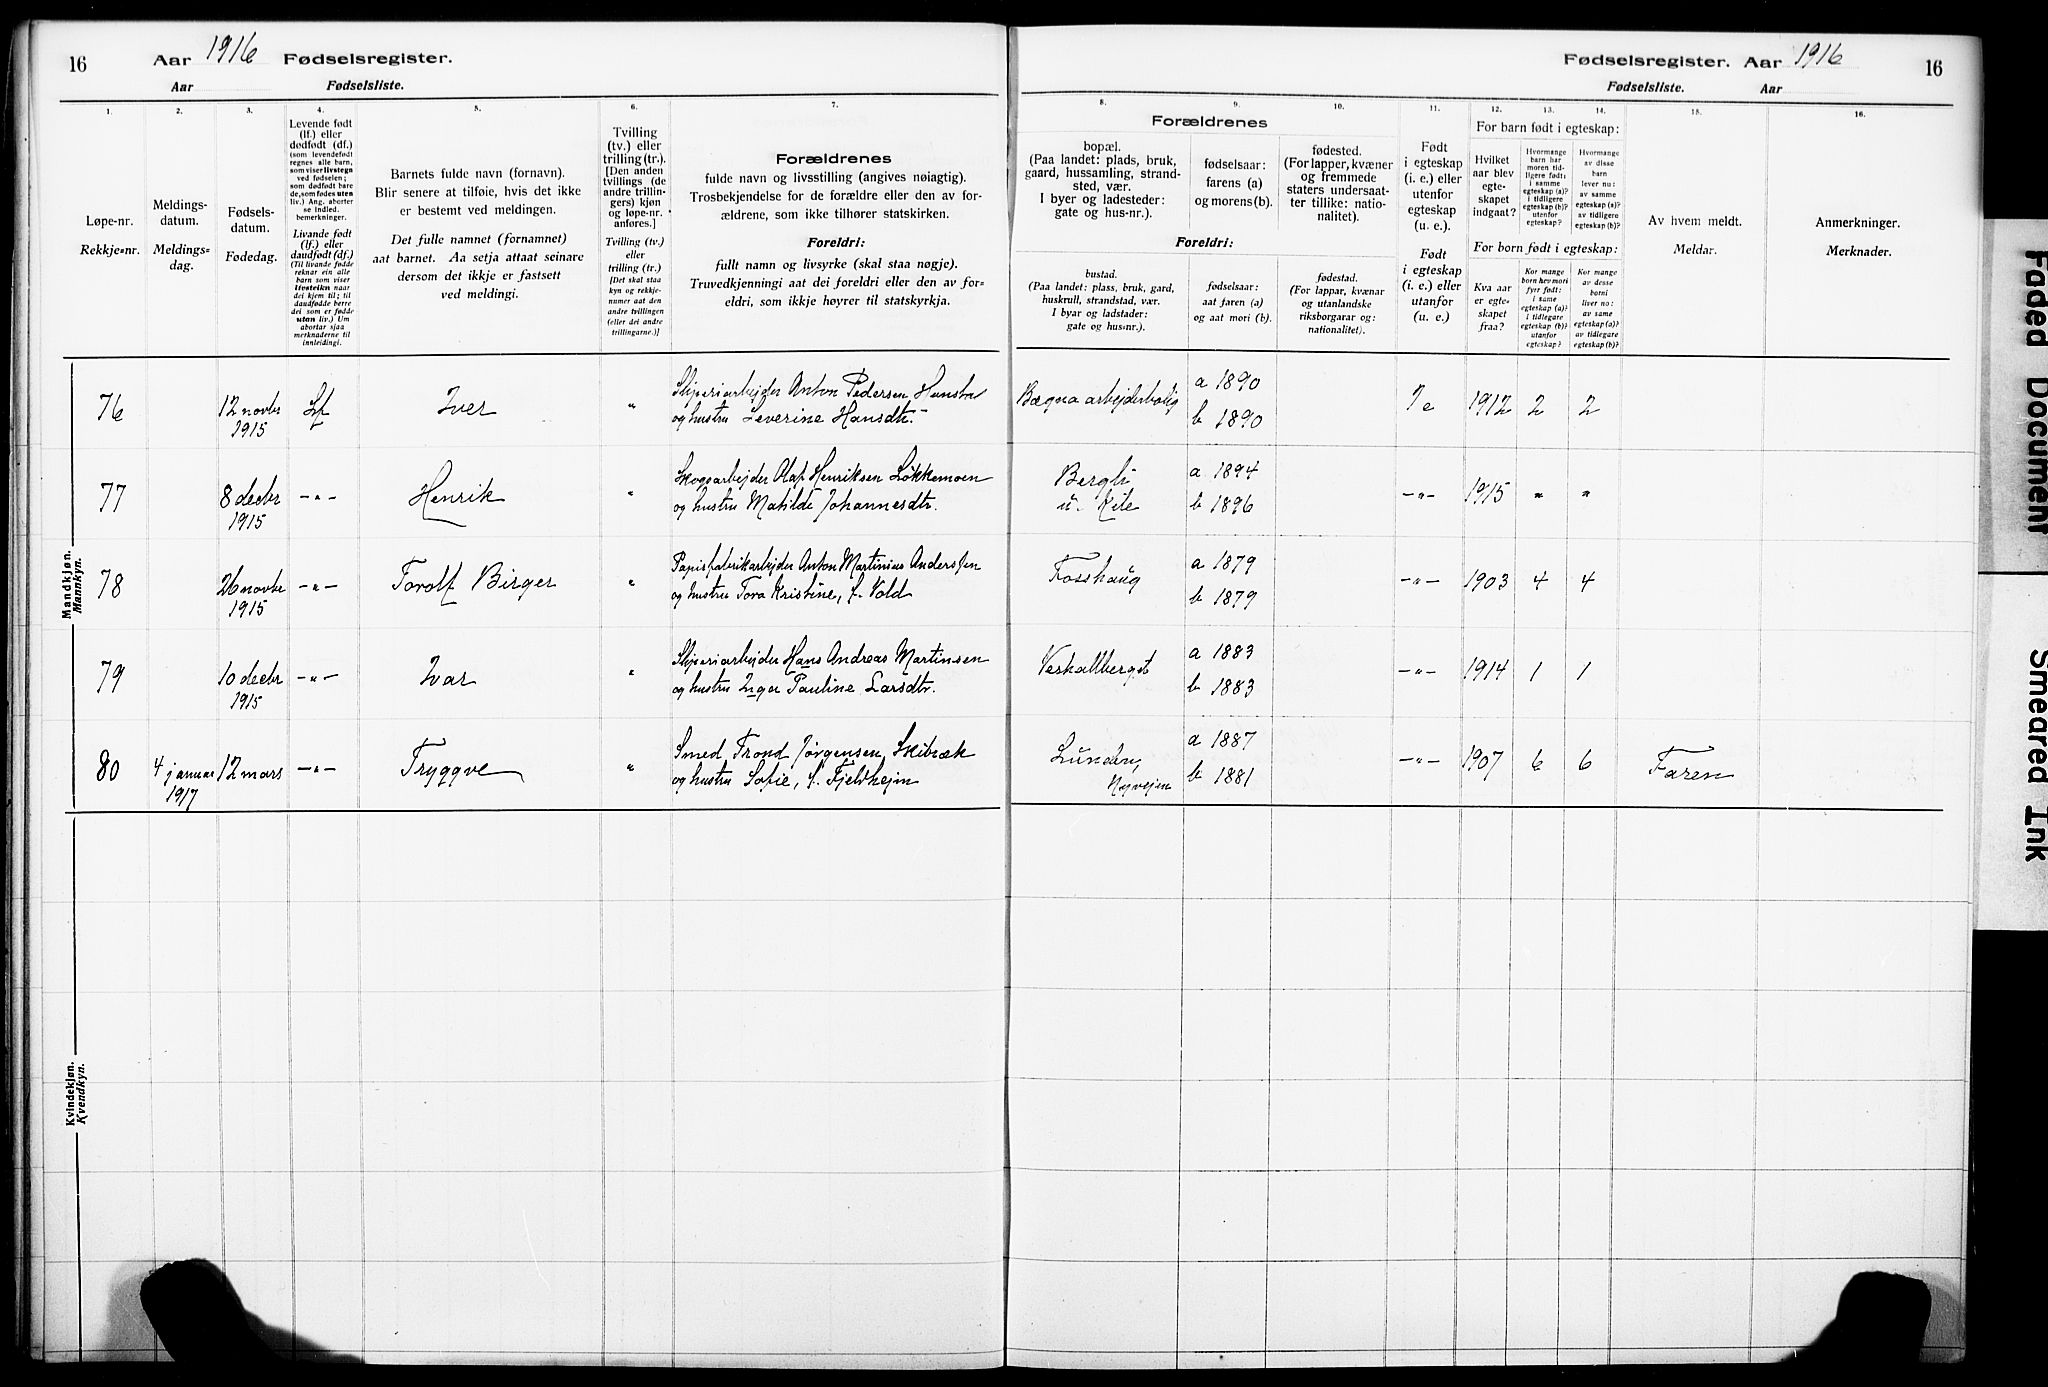 16 Aar 1916 Fødselsregister.
Aar Fødselsliste.
Fødselsregister. Aar 1916 16
Fødselsliste. Aar
1. 2. 3. 4. 5. 6. 7.
Løpe-nr.
Rekkje-nr.
Meldings-
datum.
Meldings-
dag.
Fødsels-
datum.
Fødedag.
Levende født
(lf.) eller
dødfødt (df.)
(som levendefødt
regnes alle barn,
som viser livstegn
ved fødselen;
som dødfødt bare
de, som fødes uten
liv.) Ang. aborter
se indled.
bemerkninger.
Livande født
(lf.) eller
daudfødt (df.)
(Til livande fødde
reknar ein alle
barn som viser
livsteikn naar
dei kjem til; til
daudfødde berre
dei som er fødde
utan liv.) Um
abortar sjaa
merknaderne til
innleidingi.
Barnets fulde navn (fornavn).
Blir senere at tilføie, hvis det ikke
er bestemt ved meldingen.
Det fulle namnet (fornamnet)
aat barnet. Aa setja attaat seinare
dersom det ikkje er fastsett
ved meldingi.
Tvilling
(tv.) eller
trilling (tr.).
[Den anden
tvillings (de
andre trillin-
gers) kjøn
og løpe-nr.
anføres.]
Tvilling (tv.)
eller
trilling (tr.)
[Det skal staa
kyn og rekkje-
numer aat den
andre tvillingen
(eller dei andre
trillingarne.)]
Forældrenes
fulde navn og livsstilling (angives nøiagtig).
Trosbekjendelse for de forældre eller den av for-
ældrene, som ikke tilhører statskirken.
Foreldri:
fullt namn og livsyrke (skal staa nøgje).
Truvedkjenningi aat dei foreldri eller den av for-
eldri, som ikkje høyrer til statskyrkja.
8. 9. 10. 11. 12. 13. 14. 15. 16.
Forældrenes
bopæl.
(Paa landet: plads, bruk,
gaard, hussamling, strand-
sted, vær.
I byer og ladesteder:
gate og hus-nr.).
fødselsaar:
farens (a)
og morens (b).
fødested.
(For lapper, kvæner
og fremmede
staters undersaat-
ter tillike: natio-
nalitet).
Foreldri:
bustad.
(Paa landet: plass, bruk, gard,
huskrull, strandstad, vær.
I byar og ladstader:
gate og hus-nr.).
fødselsaar:
aat faren (a)
og aat mori (b).
fødestad.
(For lappar, kvænar
og utanlandske
riksborgarar og:
nationalitet).
Født
i egteskap
(i. e.) eller
utenfor
egteskap
(u. e.).
Født
i egteskap
(i. e.) eller
utanfor
(u. e.)
For barn født i egteskap:
Hvilket
aar blev
egte-
skapet
indgaat?
Hvormange
barn har
moren tid-
ligere født:
i samme
egteskap (a)?
i tidligere
egteskap (b)?
utenfor
egteskap?
Hvormange
av disse
barn
lever nu:
av samme
egteskap (a)?
av tidligere
egteskap (b)?
For born født i egteskap:
Kva aar
er egte-
skapet
fraa?
Kor mange
born hev mori
fyrr født:
i same
egteskap (a)?
i tidlegare
egteskap (b)?
utanfor
egteskap?
Kor mange
av desse
borni
liver no:
av same
egteskap (a)?
av tidlegare
egteskap (b)?
Av hvem meldt.
Meldar.
Anmerkninger.
Merknader.
Mandkjøn.
Mannkyn.
76 12 novbr Lf Iver " Sliperiarbejder Anton Pedersen Hunstad Bægna arbejderbolig a 1890 I e 1912 2 2
1915 og hustru Severine Hansdtr. b 1890
77 8 decbr -"- Henrik " Skogsarbejder Olaf Henriksen Løkkemoen Bergli a 1894 -"- 1915 " "
1915 og hustru Matilde Johannesdtr. u. Kile b 1896
78 26 novbr -"- Torolf Birger " Papirfabrikarbejder Anton Martinius Anderssen Fosshaug a 1879 -"- 1903 4 4
1915 og hustru Tora Kristine, f. Vold b 1879
79 10 decbr -"- Ivar " Sliperiarbejder Hans Andreas Martinsen a 1883 -"- 1914 1 1
1915 og hustru Inger Pauline Larsdtr. b 1883
80 4 januar 12 mars -"- Tryggve " Smed Trond Jørgensen Skibræk Lunden, a 1887 -"- 1907 6 6 Faren
1917 og hustru Sofie, f. Fjeldhejm Nyvejen b 1881
Kvindekjøn.
Kvendkyn.
Faded Document
Smeared Ink